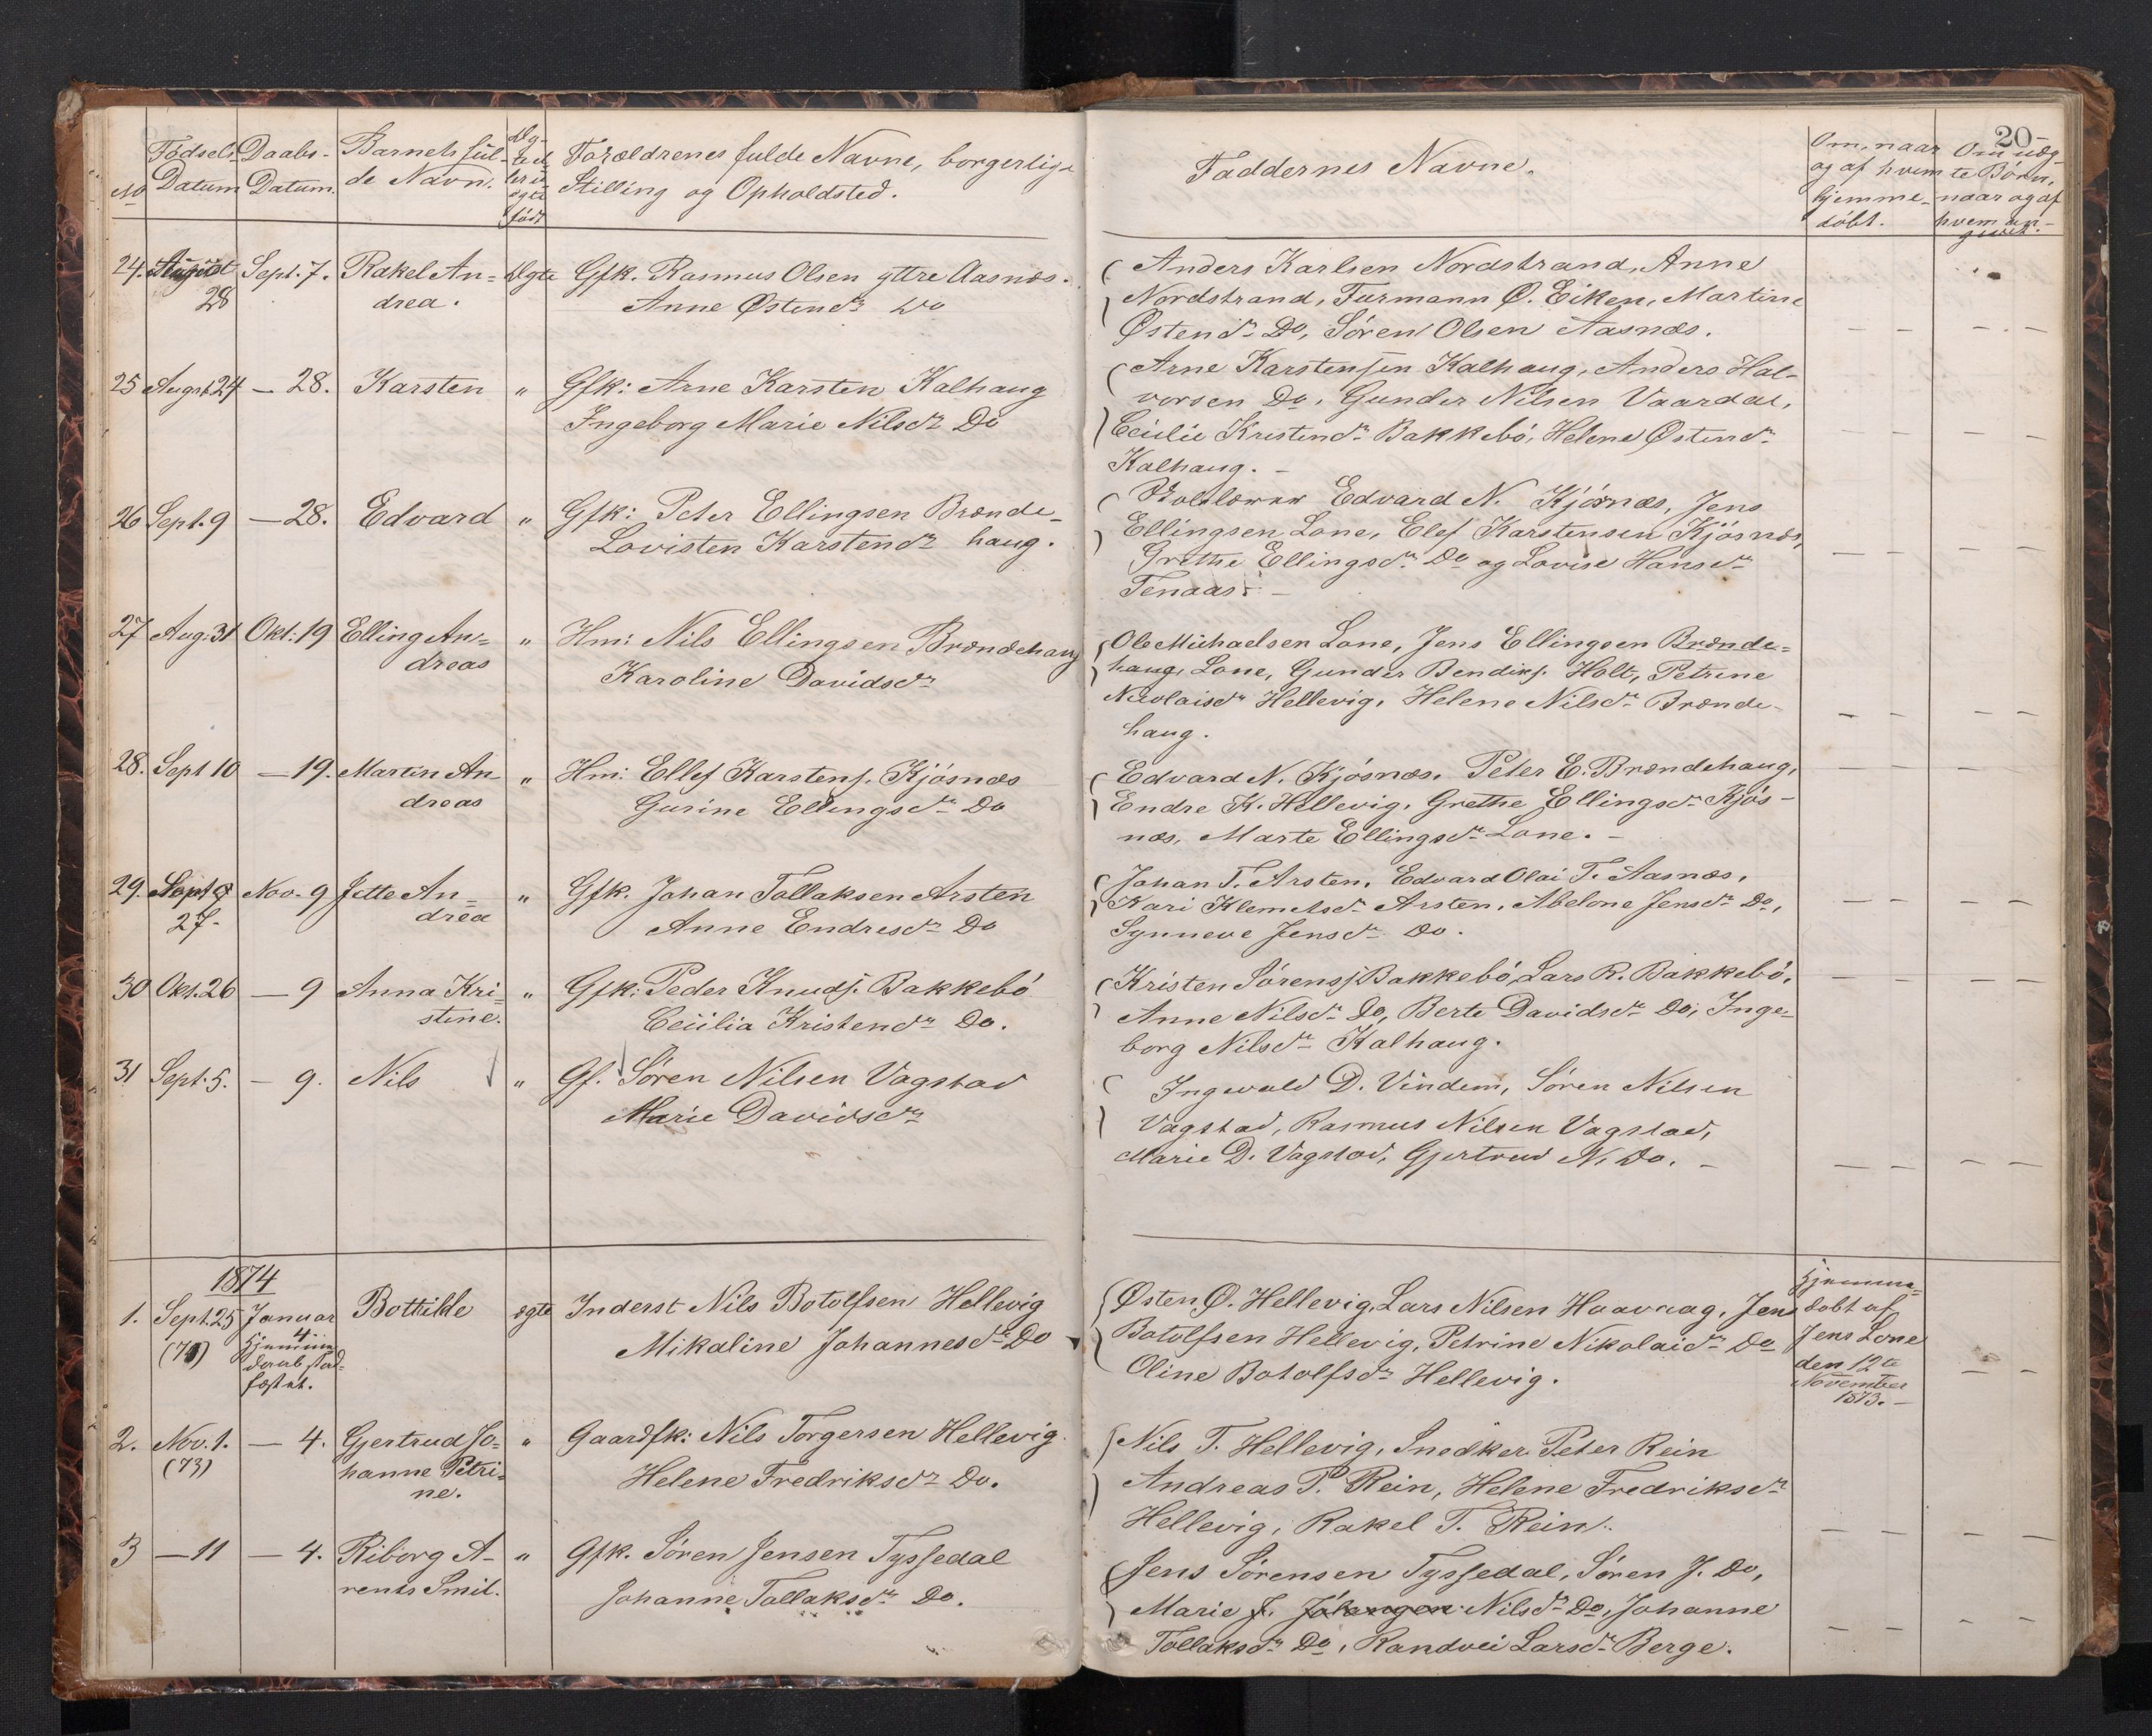 20
No
Fødsels
Datum
Daabs-
Datum.
Barnets ful-
de Navn.
Æg-
te el-
ler u-
ægte
født
Forældrenes fulde Navne, borgerlige
Stilling og Opholdsted.
Faddernes Navne.
Om, naar
og af hvem
hjemme-
døbt.
Om uæg-
te Børn,
naar og af
hvem an-
givet.
24. August Sept. 7. Rakel An= Ægte Gfk. Rasmus Olsen yttre Aasnæs.
28 drea. Anne Østensdr Do
Anders Karlsen Nordstrand, Anne
Nordstrand, Furmann Ø. Eiken, Martine
Østensdr Do, Søren Olsen Aasnæs.
25 Augst 24 — 28. Karsten " Gfk: Arne Karsten Kalhaug
Ingeborg Marie Nilsdr Do
Arne Karstensen Kalhaug, Anders Hal-
vorsen Do, Gunder Nilsen Vaardal,
Cecilie Kristendr Bakkebø, Helene Østendr
Kalhaug. -
26 Sept. 9 — 28. Edvard " Gfk: Peter Ellingsen Brænde-
Lovisten Karstendr haug.
Edvard N. Kjøsnæs, Jens
Ellingsen Lone, Elef Karstensen Kjøsnæs,
Grethe Ellingsdr Do og Lovise Hansdr
Tenaas. -
27 Aug. 31 Okt. 19 Elling An= " Hm: Nils Ellingsen Brændehaug
dreas Karoline Davidsdr
Ole Michaelsen Lone, Jens Ellingsen Brænde=
haug, Lone, Gunder Bendiks. Holt, Petrine
Nicolaisdr Hellevig, Helene Nilsdr Brænde-
haug.
28. Sept 10 — 19. Martin An- " Hm: Ellef Karstens. Kjøsnæs
dreas Gurine Ellingsdr Do
Edvard N. Kjøsnæs, Peter E. Brændehaug,
Endre K. Hellevig, Grethe Ellingsdr Kjøs-
næs, Marte Ellingsdr Lone. -
29. Sept Nov. 9 Jette An= " Gfk. Johan Tollaksen Arsten
27. drea Anne Endresdr Do
Johan T. Arsten, Edvard Olai T. Aasnæs,
Kari Klemetsdr Arsten, Abelone Jensdr Do,
Synneve Jensdr Do.
30 Okt. 26 — 9 Anna Kri- " Gfk: Peder Knuds. Bakkebø
stine. Cecilia Kristendr Do.
Kristen Sørens. Bakkebø, Lars R. Bakkebø,
Anne Nilsdr Do, Berte Davidsdr Do, Inge-
borg Nilsdr Kalhaug.
31 Sept. 5. — 9. Nils " Gf. Søren Nilsen Vagstad
Marie Davidsdr
Ingevald D. Vindem, Søren Nilsen
Vagstad, Rasmus Nilsen Vagstad,
Marie D. Vagstad, Gjertrud N. Do. -
1874
1. Sept. 25 Januar Bothilde ægte Inderst Nils Botolfsen Hellevig
(73) 4. Mikaline Johannesdr Do
Hjemme
daab stad-
fæstet.
Østen Ø. Hellevig, Lars Nilsen Haavaag, Jens
Botolfsen Hellevig, Petrine Nikolaidr Do
Oline Botolfsdr Hellevig.
Hjemme-
døbt af
Jens Lone
den 12te
November
1873. -
2. Nov. 1. — 4. Gjertrud Jo= " Gaardfk: Nils Torgersen Hellevig.
(73) hanne Petri= Helene Fredriksdr Do.
ne.
Nils T. Hellevig, Snedker Peter Rein
Andreas P. Rein, Helene Fredriksdr
Hellevig, Rakel T. Rein.
3 — 11 — 4. Riborg A- " Gfk. Søren Jensen Tyssedal
rents Smil. Johanne Tollaksdr Do.
Jens Sørensen Tyssedal, Søren J. Do,
Marie Nilsdr Do, Johanne
Tollaksdr Do, Randvei Larsdr Berge.